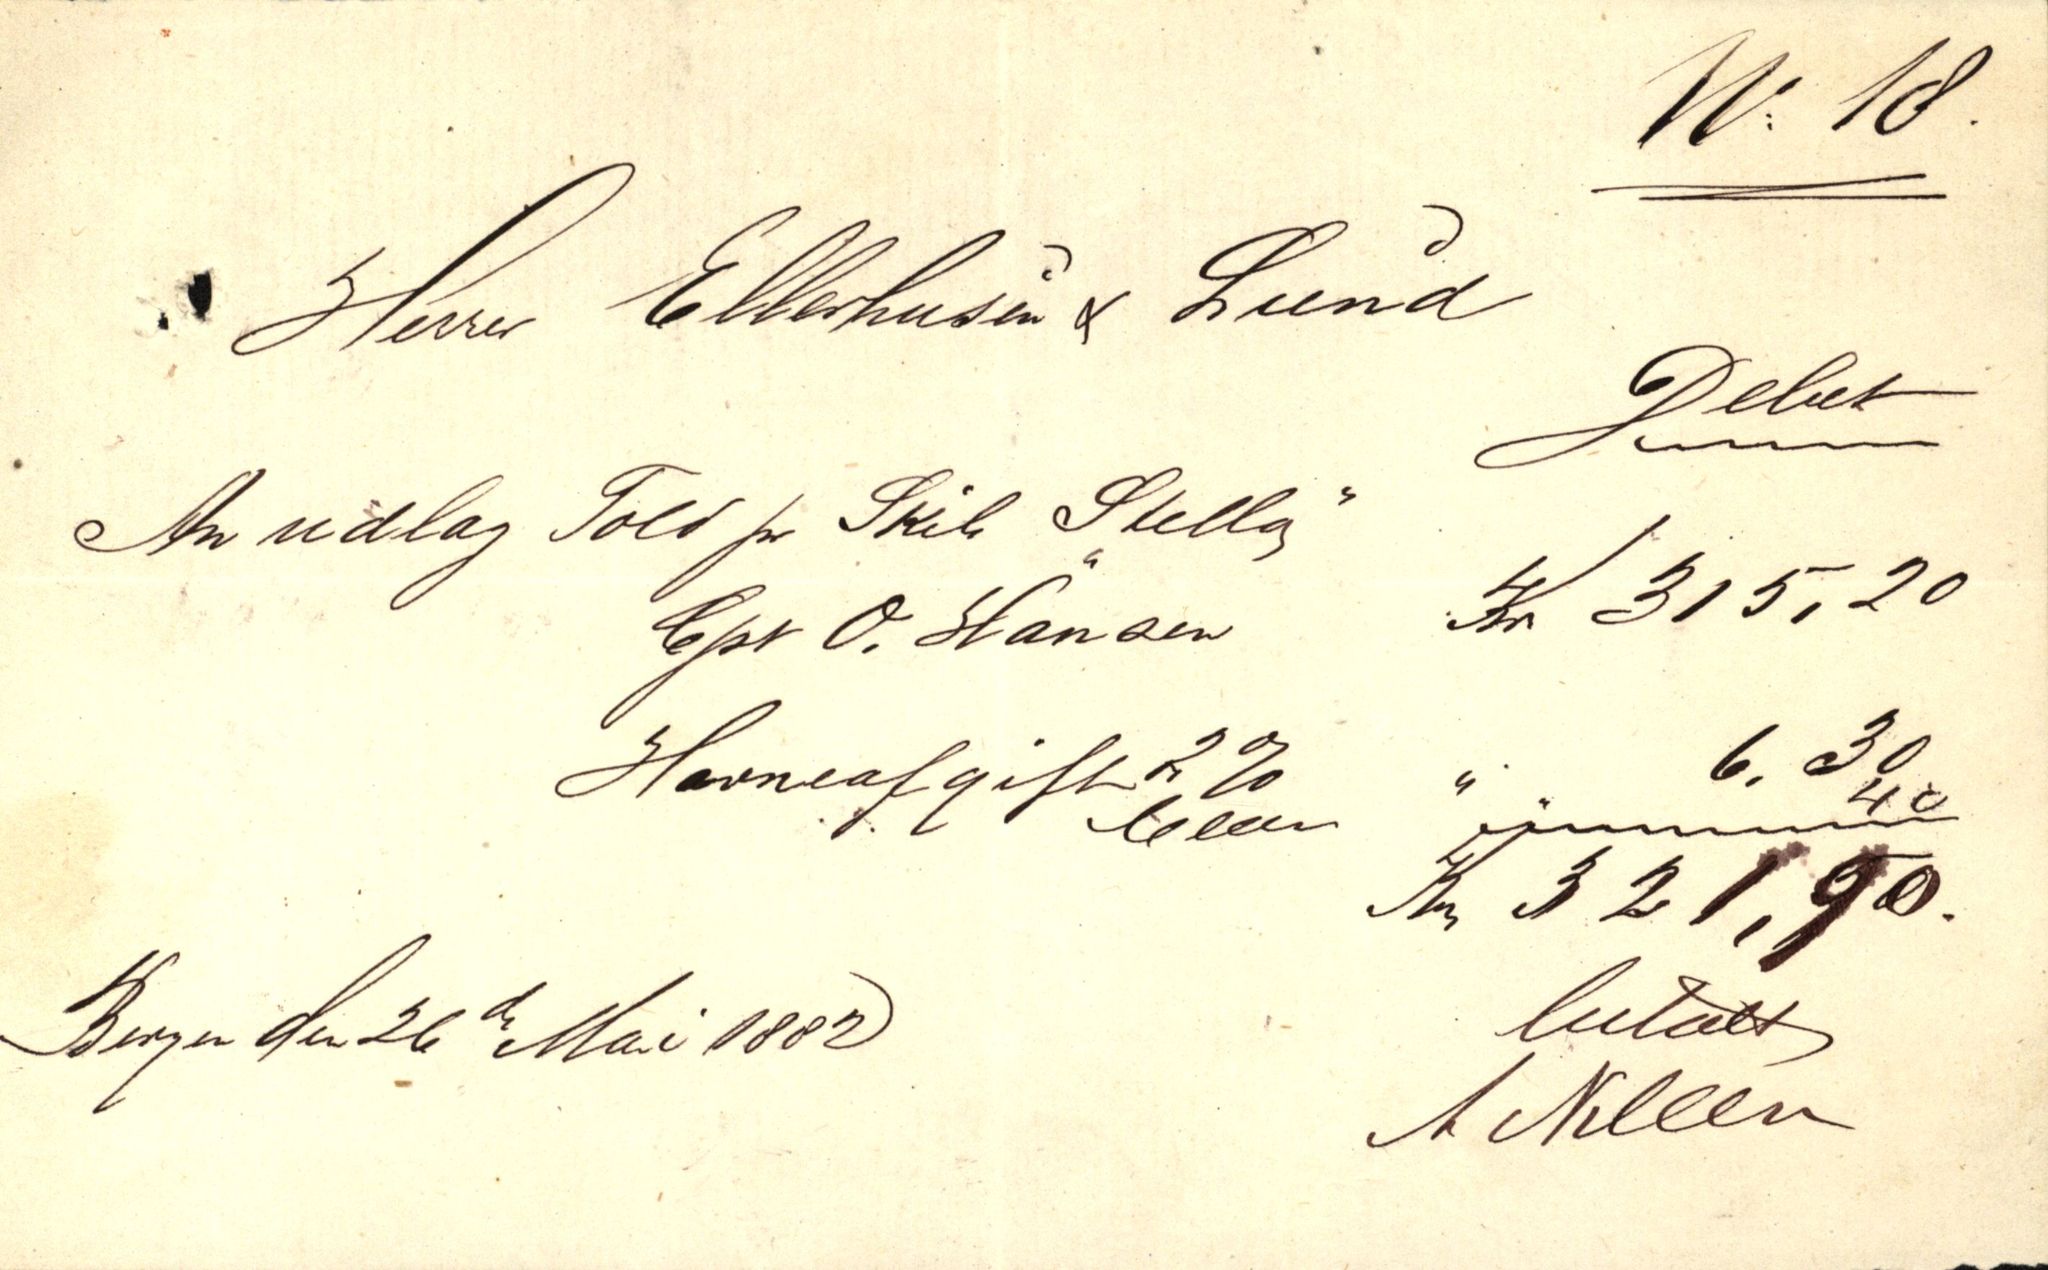 No. 18.
Herrer Ellerhusen & Lund
Debet
An udlag Told pr Skib "Stella"
Cpt O. Hansen Kr 315,20
Havneafgift 2 % " 6.30
" 40
Kr 321,90.
Bergen den 26de Mai 1882
betalt
A Nilsen